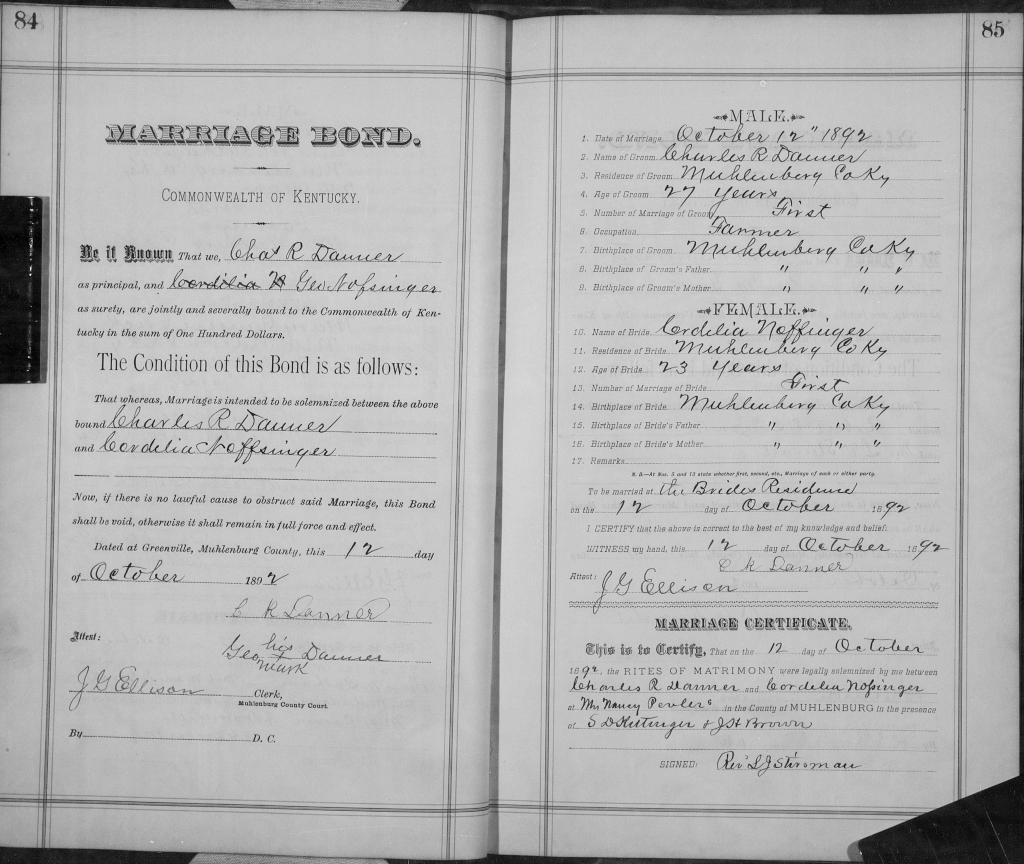 84
MARRIAGE BOND.
COMMONWEALTH OF KENTUCKY.
Be it Known That we, Chas R Danner
as principal, and Cordilia N Geo Nofsinger
as surety, are jointly and severally bound to the Commonwealth of Ken-
tucky in the sum of One Hundred Dollars.
The Condition of this Bond is as follows:
That whereas, Marriage is intended to be solemnized between the above
bound Charles R Danner
and Cordelia Noffsinger
Now, if there is no lawful cause to obstruct said Marriage, this Bond
shall be void, otherwise it shall remain in full force and effect.
Dated at Greenville, Muhlenburg County, this 12 day
of October 1892
C R Danner
Attest:
his
Geo + Danner
mark
J G Ellison Clerk,
Muhlenburg County Court.
By D. C.
85
MALE.
1. Date of Marriage October 12" 1892
2. Name of Groom Charles R Danner
3. Residence of Groom Muhlenberg Co Ky
4. Age of Groom 27 years
5. Number of Marriage of Groom First
6. Occupation Farmer
7. Birthplace of Groom Muhlenberg Co Ky
8. Birthplace of Groom's Father " " "
9. Birthplace of Groom's Mother " " "
FEMALE.
10. Name of Bride Cordelia Noffinger
11. Residence of Bride Muhlenberg Co Ky
12. Age of Bride 23 Years
13. Number of Marriage of Bride First
14. Birthplace of Bride Muhlenberg Co Ky
15. Birthplace of Bride's Father " " "
16. Birthplace of Bride's Mother " " "
17. Remarks
N. B.—At Nos. 5 and 13 state whether first, second, etc., Marriage of each or either party.
To be married at the Brides Residence
on the 12 day of October 1892
I CERTIFY that the above is correct to the best of my knowledge and belief.
WITNESS my hand, this 12 day of October 1892
C R Danner
Attest:
J G Ellison
MARRIAGE CERTIFICATE.
This is to Certify, That on the 12 day of October
1892, the RITES OF MATRIMONY were legally solemnized by me between
Charles R Danner and Cordelia Nofsinger
at Mrs Nancy Penlers in the County of MUHLENBURG in the presence
of S D Kittinger & J H Brown
SIGNED: Rev S J Stiroman